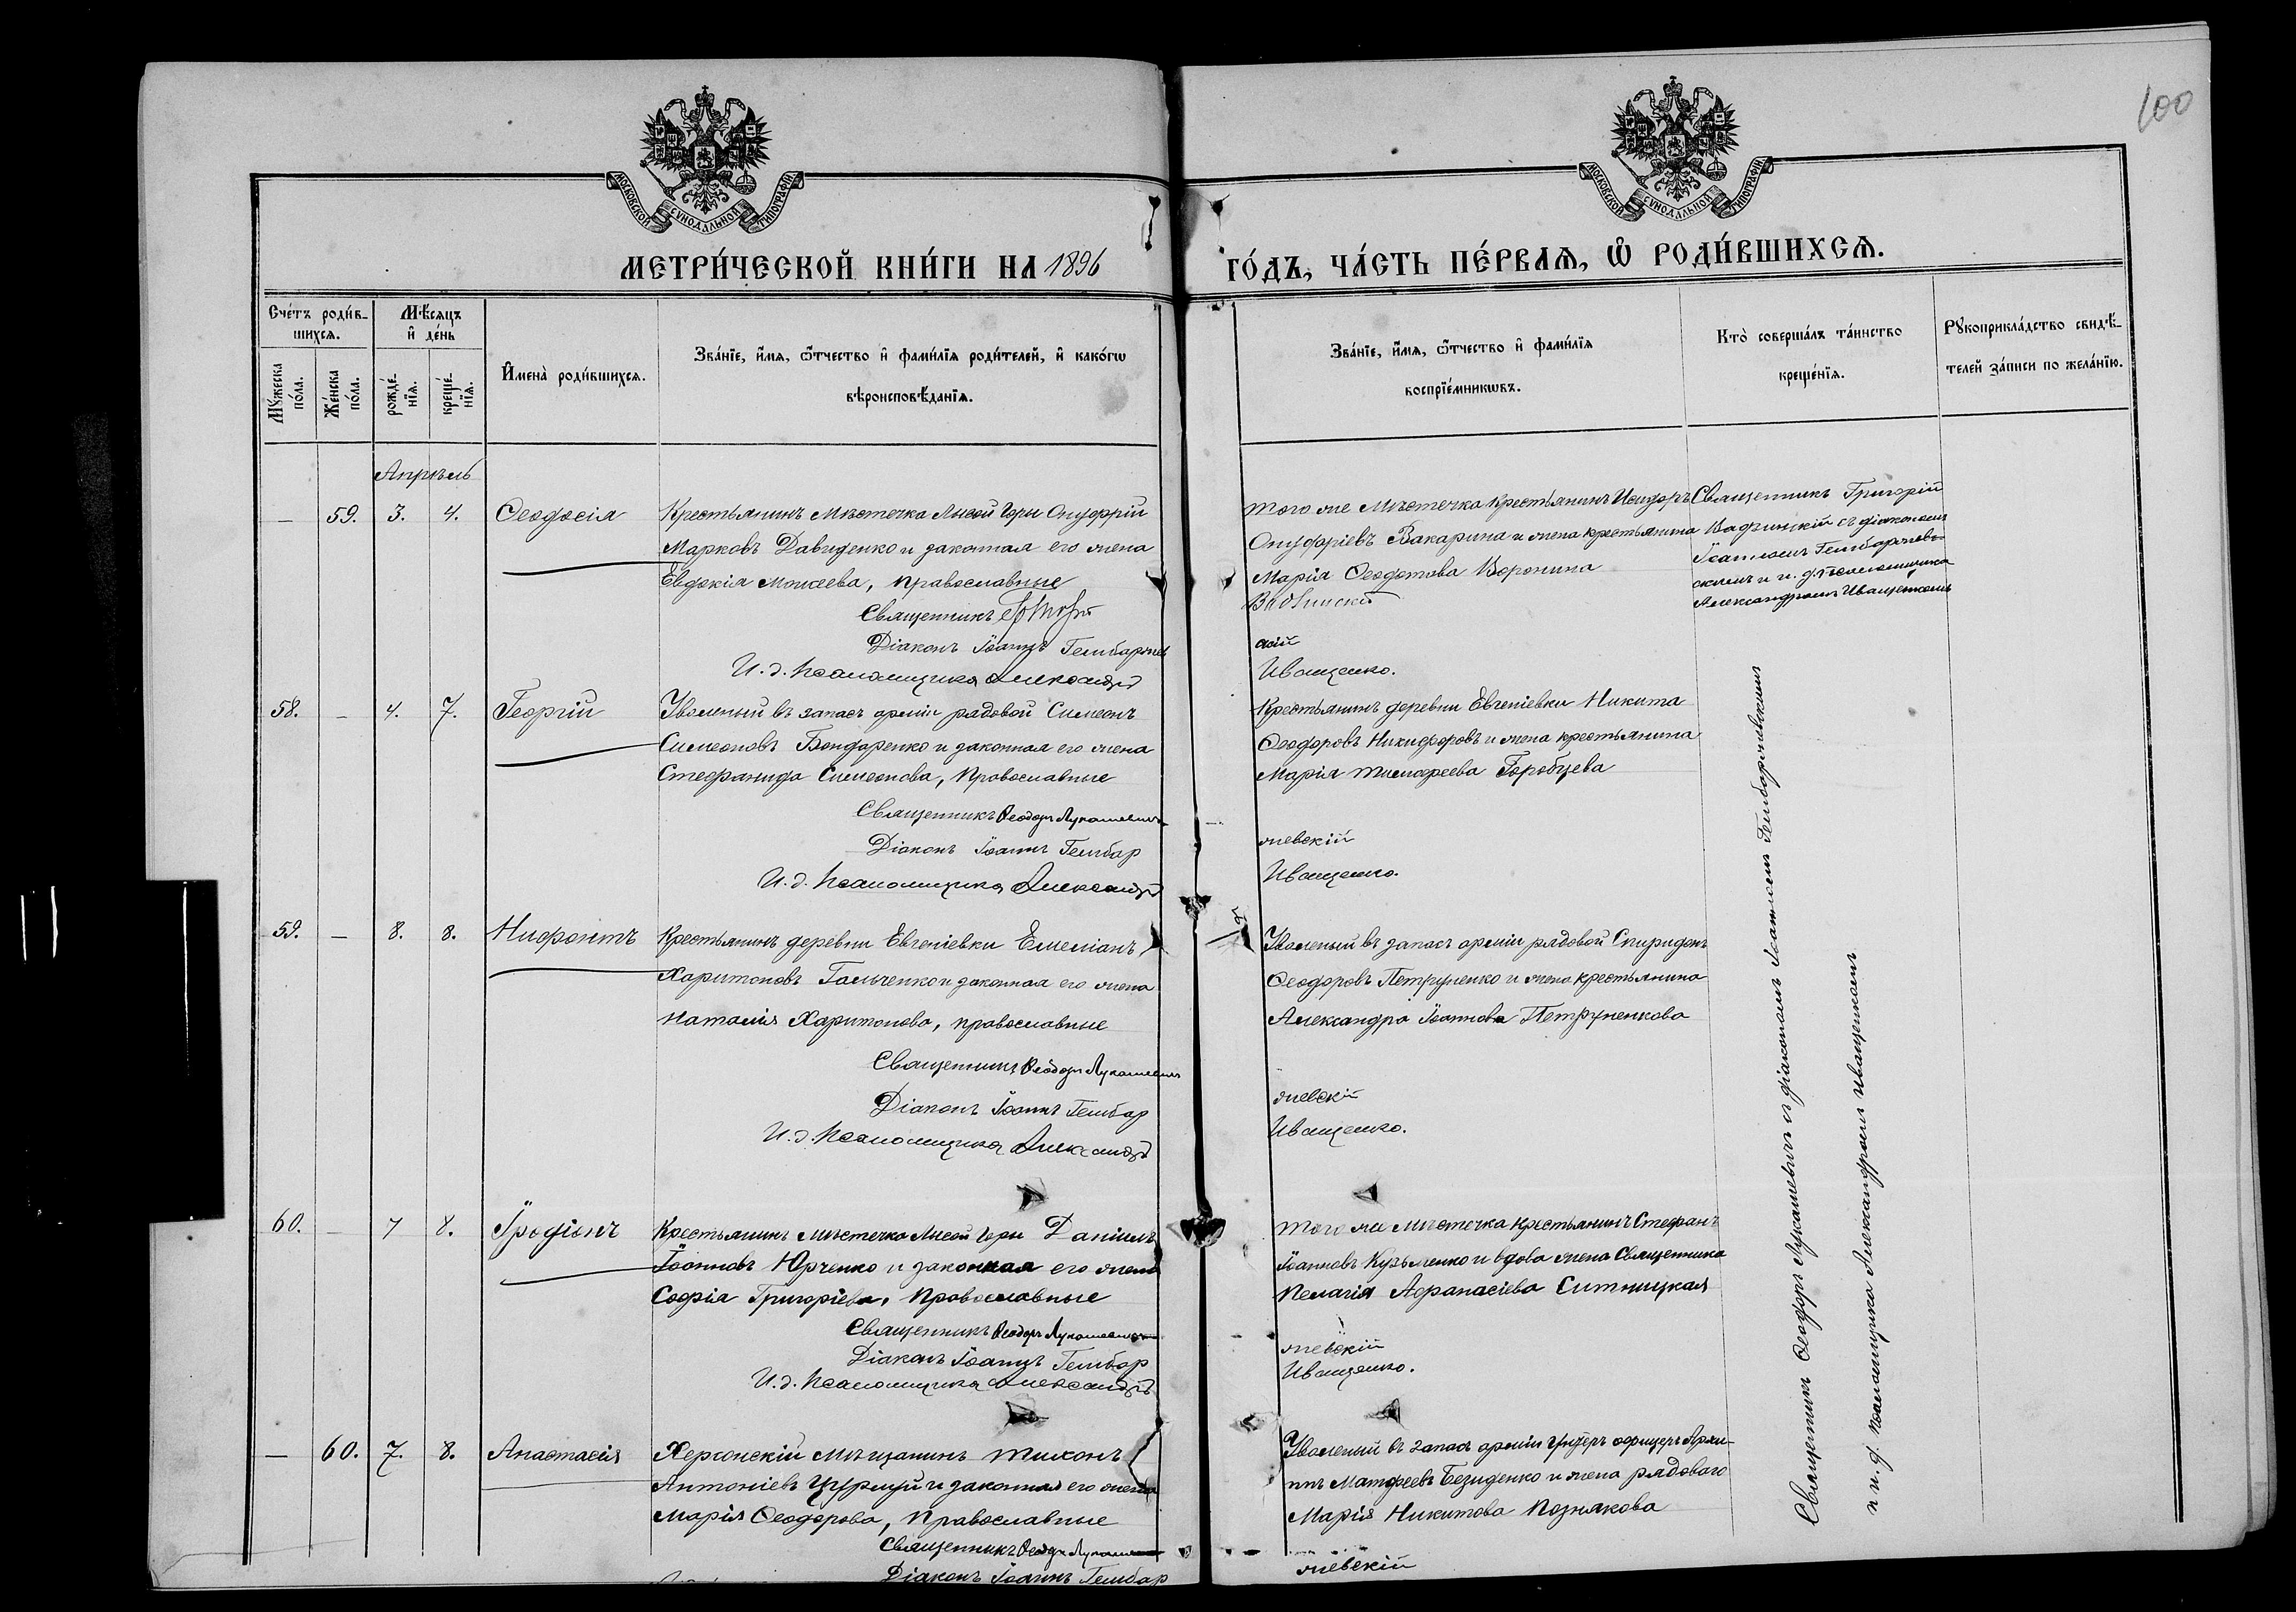 100
МОСКОВСКОЙ СУНОДАЛЬНОЙ ТИПОГРАФІИ
МОСКОВСКОЙ СУНОДАЛЬНОЙ ТИПОГРАФІИ
МЕТРИ́ЧЕСКОЙ КНИ́ГИ НА 1896 ГО́ДЪ, ЧА́СТЬ ПЕ́РВАѦ, Ѡ РОДИ́ВШИХСѦ.
Сче́тъ роди́в-
шихсѧ.
Мꙋ́жеска
по́ла.
Же́нска
по́ла.
Мѣ́сѧцъ
и҆ де́нь
рожде́-
нїѧ.
креще́-
нїѧ.
И҆мена̀ роди́вшихсѧ.
Зва́нїе, и҆́мѧ, ѻ҆́тчество и҆ фами́лїѧ роди́телей, и҆ како́гѡ
вѣроисповѣ́данїѧ.
Зва́нїе, и҆́мѧ, ѻ҆́тчество и҆ фами́лїѧ
воспрїе́мникѡвъ.
Кто̀ соверша́лъ та́инство
креще́нїѧ.
Рꙋкоприкла́дство свидѣ́-
телей за́писи по жела́нїю.
Апрѣль
— 59. 3. 4. Ѳеодосія
Крестьянинъ Мѣстечка Лысой Горы Онуфрій
Марковъ Давиденко и законная его жена
Евдокія Моисеева, православные
Священникъ
Діаконъ Іоаннъ Гембаржев
И. д. Псаломщика Александръ
Того же Мѣстечка крестьянинъ Исидоръ
Онуфріевъ Вакарина и жена крестьянина
Марія Ѳеодотова Воронина
скій
Иващенко.
Священникъ Григорій
съ діакономъ
Іоанномъ Гембаржев-
скимъ и и. д. псаломщика
Александромъ Иващенкомъ
58. — 4. 7. Георгій
Уволеный въ запасъ арміи рядовой Симеонъ
Симеоновъ Бондаренко и законная его жена
Стефанида Симеонова, православные
Священникъ Ѳеодоръ Лукашевичъ
Діаконъ Іоаннъ Гембар
И. д. Псаломщика Александръ
Крестьянинъ деревни Евгеніевки Никита
Ѳеодоровъ Никифоровъ и жена крестьянина
Марія Тимофеева Горобцева
жевскій
Иващенко.
59. — 8. 8. Нифонтъ
Крестьянинъ деревни Евгеніевки Емеліанъ
Харитоновъ Гальченко и законная его жена
Наталія Харитонова, православные
Священникъ Ѳеодоръ Лукашевичъ
Діаконъ Іоаннъ Гембар
И. д. Псаломщика Александръ
Уволеный въ запасъ арміи рядовой Спиридонъ
Ѳеодоровъ Петруненко и жена крестьянина
Александра Іоаннова Петруненкова
жевскій
Иващенко.
60. — 7 8. Іродіонъ
Крестьянинъ Мѣстечка Лысой Горы Даніилъ
Іоанновъ Юрченко и законная его жена
Софія Григоріева, православные
Священникъ Ѳеодоръ Лукашевичъ
Діаконъ Іоаннъ Гембар
И. д. Псаломщика Александръ
Того же Мѣстечка крестьянинъ Стефанъ
Іоанновъ Кузьменко и вдова жена Священника
Пелагія Афанасіева Ситницкая
жевскій
Иващенко.
— 60. 7. 8. Анастасія
Херсонскій Мѣщанинъ Тихонъ
Антоніевъ и законная его жена
Марія Ѳеодорова, православные
Священникъ Ѳеодоръ
Діаконъ Іоаннъ Гембар
Уволеный въ запасъ арміи унтеръ офицеръ Архи-
пъ Матфеевъ Безиденко и жена рядового
Марія Никитова Познякова
жевскій
Священникъ Ѳеодоръ Лукашевичъ съ діакономъ Іоанномъ Гембаржевскимъ
и и. д. псаломщика Александромъ Иващенкомъ